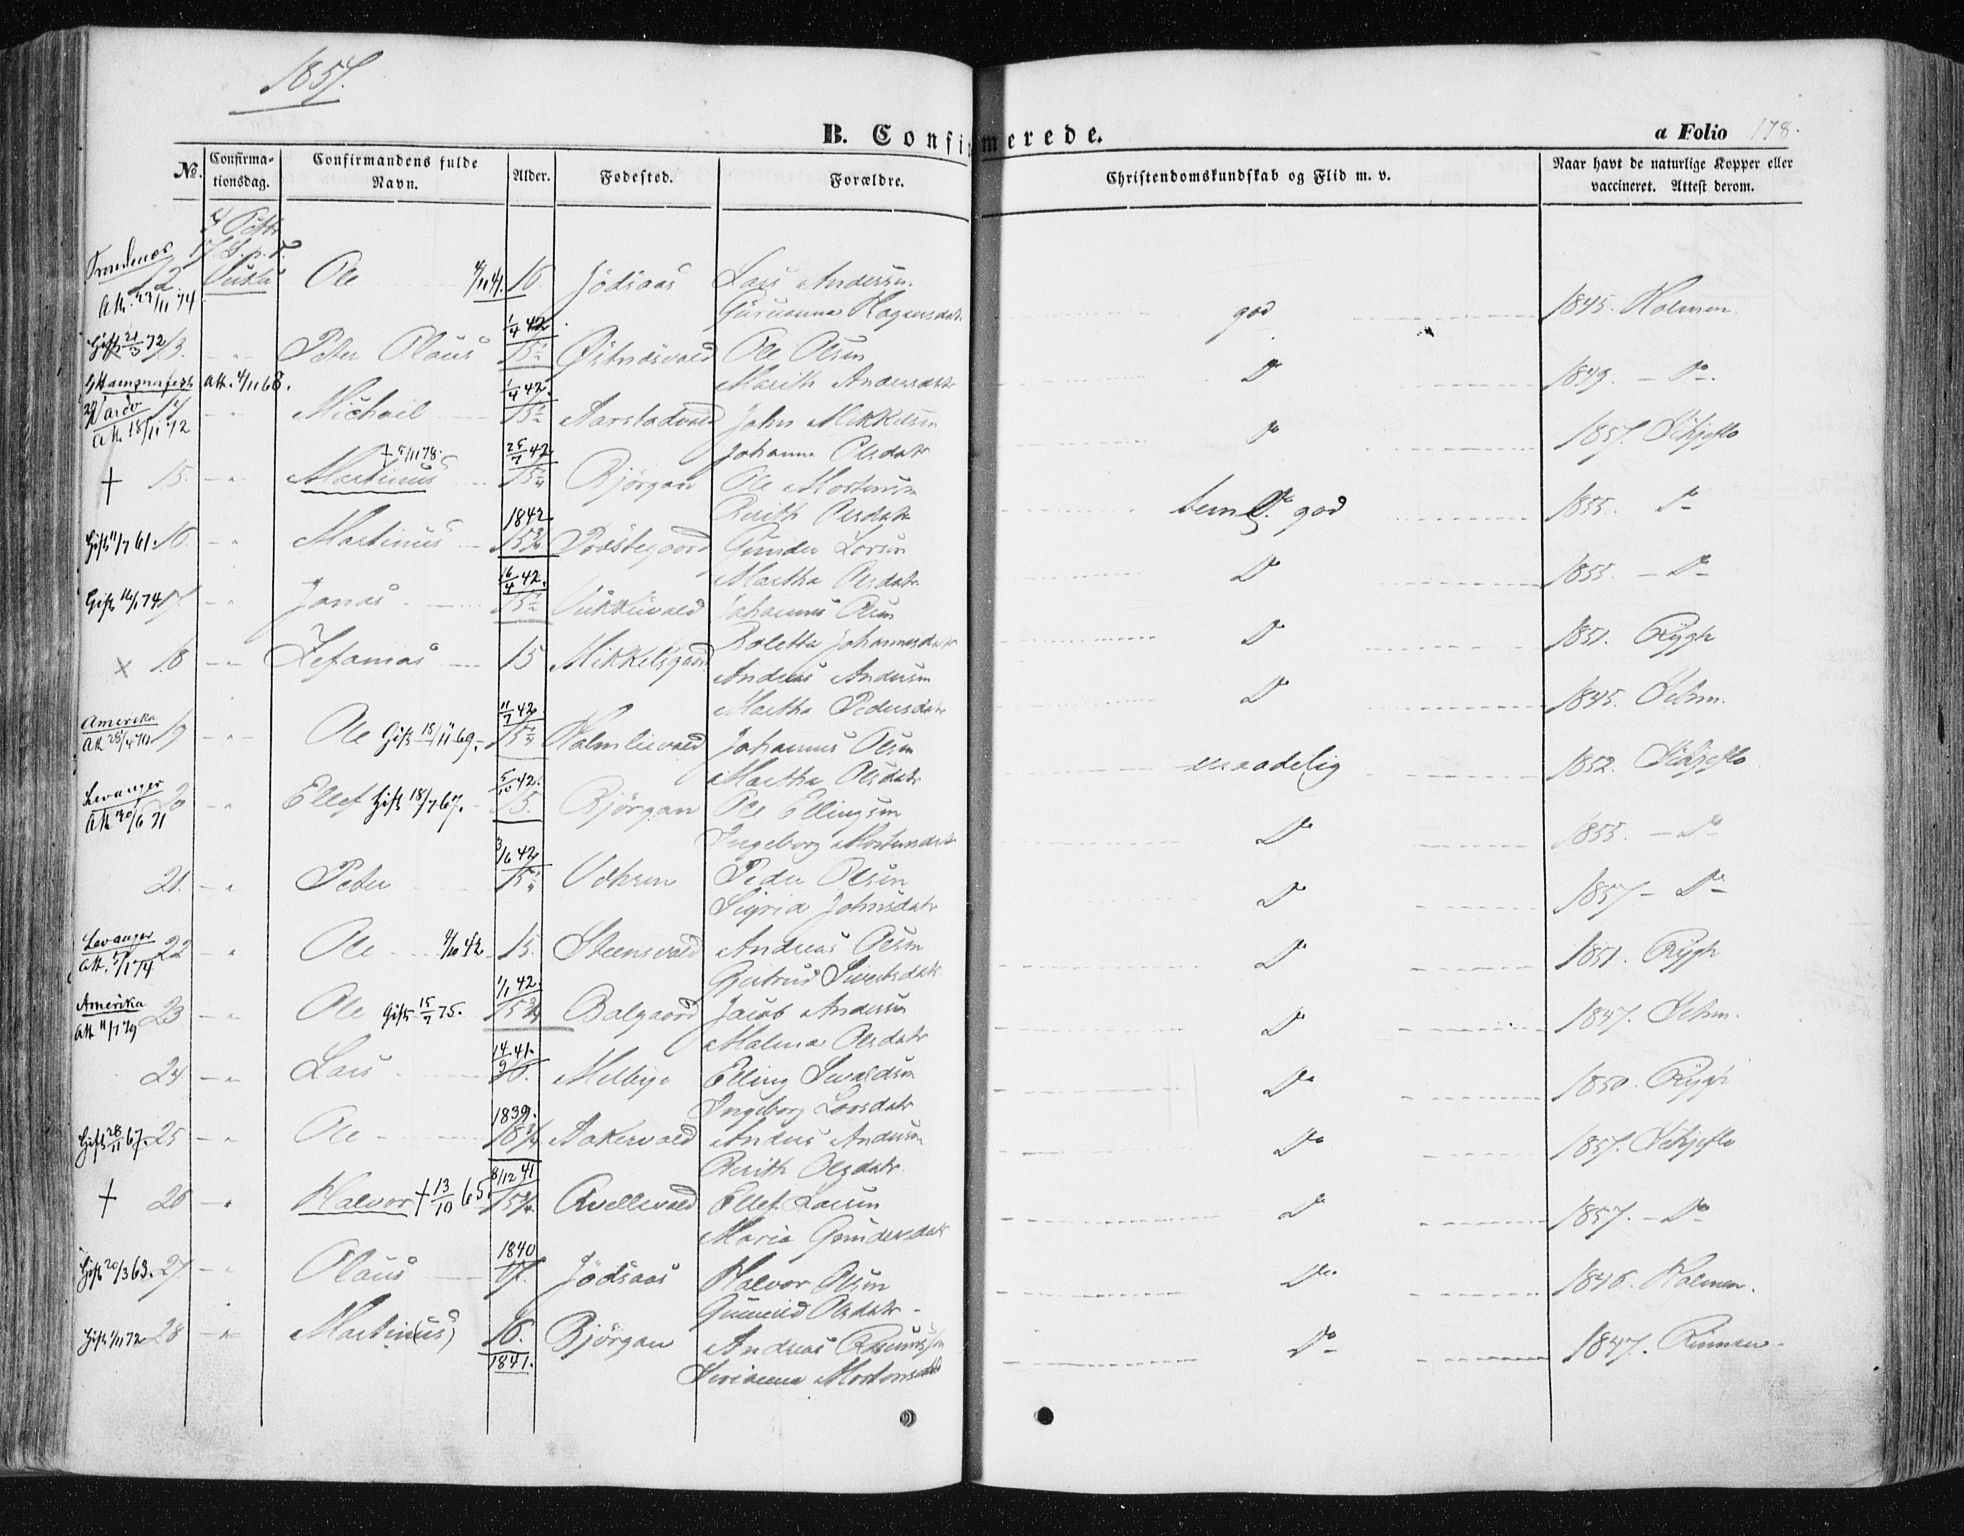 1857.
B. Confirmerede.
a Folio 178.
No. Confirmationsdag. Confirmandens fulde Navn. Alder. Fødested. Forældre. Christendomskundskab og Flid m. v. Naar havt de naturlige Kopper eller vaccineret. Attest derom.
4 Octbr
17. S. p. T.
12. Ole 4/11 41. 16. Jödsaas Lars Andersen
Att. 29/11 74 Guruanna Hagensdatr god 1845. Holmen.
Gift 21/3 72 13. Peter Olaus 1/4 42 15 1/2 Østnæsvald Ole Olsen
Marith Andersdatr Do 1849. - Do.
Hammerfest Att. 4/11 68.
Vardö 14 Michael 1/4 42. 15 1/2 Aarstadvald John Mikkelsen
Att. 18/11 72 Johanna Olsdatr Do 1857. Schjeflo
† 5/11 78.
† 15. Martinus 25/7 42 15 1/4 Björgan Ole Mortensen
Berith Olsdatr temel. god 1855. Do
Gift 11/7 61. 16. Martinus 1842 15 3/4 Gunder Larsen
Martha Olsdatr Do 1855. - Do
Gift 16/1 74 17. Jonas 16/4 42. 15 1/2 Johannes Olsen
Boletta Johannesdatr Do 1851. Rygh
x 18 Zefanias 15 Mikkelsgaard Andreas Andersen
Martha Pedersdatr Do 1845. Schm.
Amerika
Att 28/4 70 19 Ole Gift 18/11 69. 11/7 42 15 1/4 Holmlivald Johannes Olsen
Martha Olsdatr maadelig 1852. Schjeflo
Levanger
Att 20/6 71 20 Ellef Gift 18/7 67. 5/10 42. 15. Björgan Ole Ellingsen
Ingeborg Mortensdatr Do 1855. - Do
21. Peter 3/6 42 15 1/4 Vohren Peder Olsen
Sigrid Johnsdatr Do 1857 - Do
Levanger
Att. 5/1 74 22 Ole 4/10 42 15. Steensvald Andreas Olsen
Gertrud Sivertsdatr Do 1851. Rygh
Amerika
Att 11/1 79 23 Ole Gift 15/7 75. 1/1 42. 15 3/4 Balgaard Jacob Andersen
Malena Olsdatr Do 1847. Schm.
24 Lars 14/9 41. 16. Melbye Elling Sivaldsen
Ingeborg Larsdatr Do 1850. Rygh
Gift 28/11 67. 25 Ole 1839. 18 3/4 Aakervald Anders Andersen
Berith Olsdatr Do 1857. Schjeflo
† 26 Halvor † 13/10 65. 8/12 41 15 3/4 Qvellovald Ellef Larsen
Maria Gundersdatr Do 1857. - Do
Gift 20/3 63. 27 Olaus 1840 17. Jödsaas Halvor Olsen
Gunnild Olsdatr Do 1846. Holmen.
28 Martin(us) 16. Björgan Andreas
1841. Mortensdatr Do 1847. Rinnan